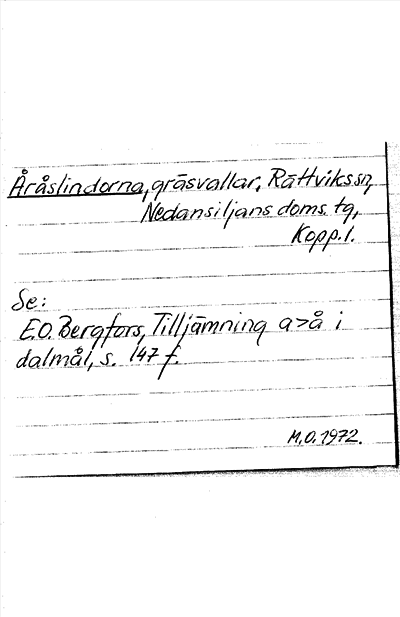 Åråslindorna, gräsvallar, Rättviks sn,
Nedansiljans doms. tg,
Kopp. l.
Se:
E.O. Bergfors, Tilljämning a>å i
dalmål, s. 147 f.
M.O. 1972.